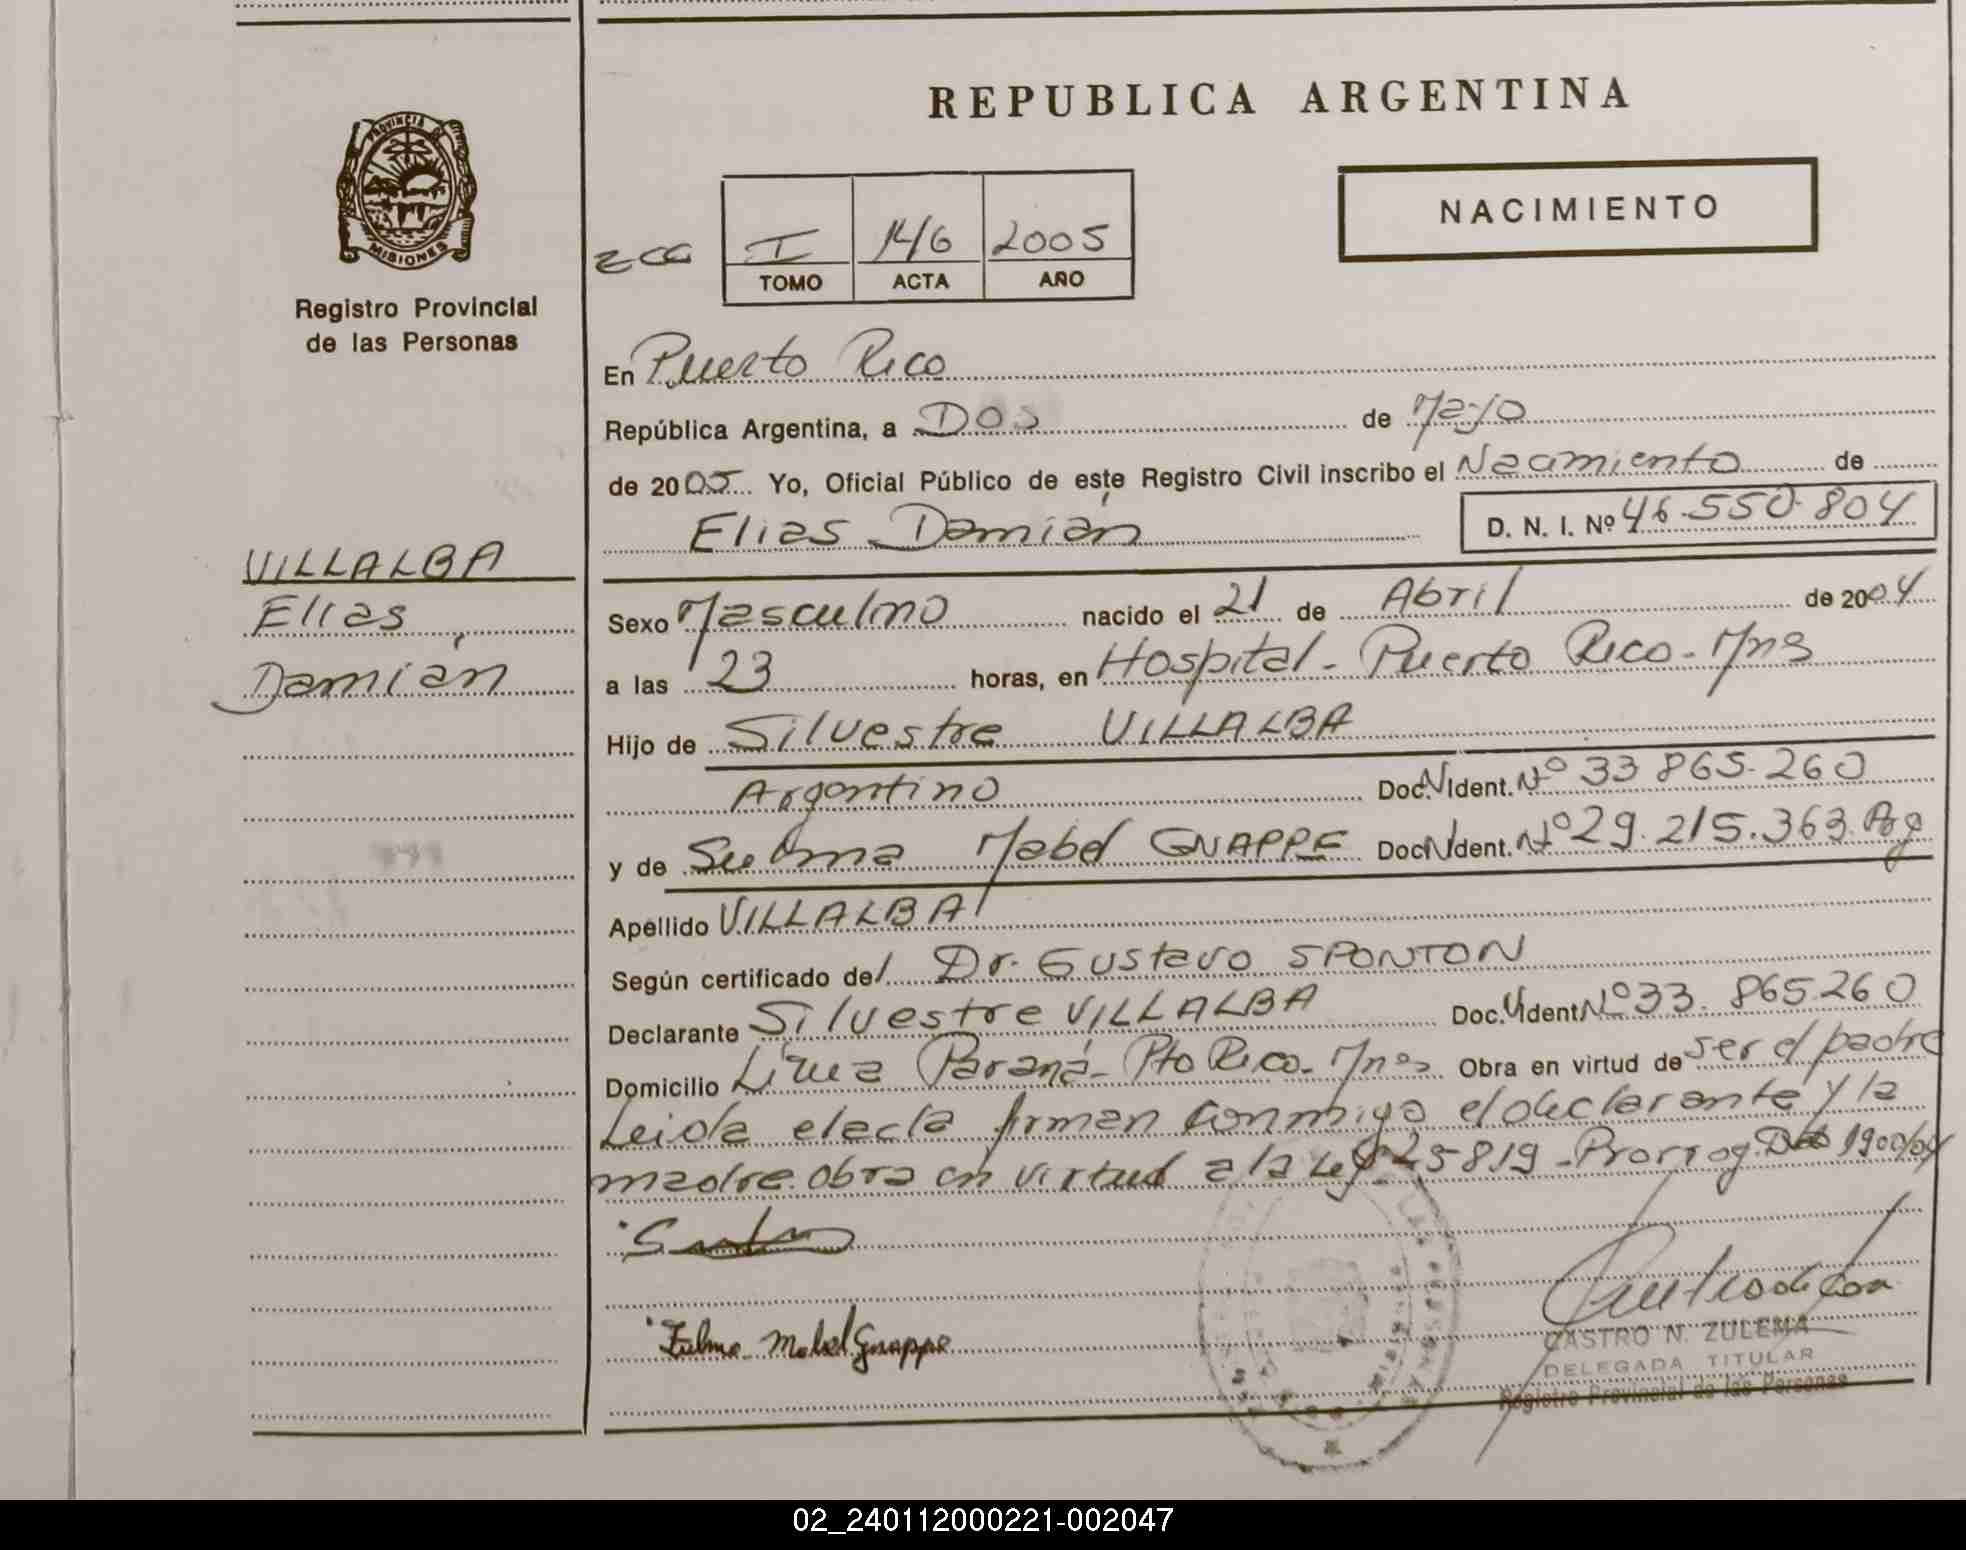 REPUBLICA ARGENTINA
PROVINCIA DE
MISIONES
Registro Provincial
de las Personas
NACIMIENTO
I 146 2005
TOMO ACTA AÑO
En Puerto Rico
República Argentina, a Dos de Mayo
de 2005 Yo, Oficial Público de este Registro Civil inscribo el Nacimiento de
Elias Damián D. N. I. Nº 46.550.804
VILLALBA
Elias
Damián
Sexo Masculino nacido el 21 de Abril de 2004
a las 23 horas, en Hospital - Puerto Rico - Mns
Hijo de Silvestre VILLALBA
Argentino Doc. N Ident. Nº 33 865.260
y de Mabel GNAPPE Doc. N Ident. Nº 29.215.363. Arg
Apellido VILLALBA
Según certificado del Dr. Gustavo SPONTON
Declarante Silvestre VILLALBA Doc. N Ident. Nº 33. 865.260
Domicilio Línea Paraná - Pto Rico - Mnes Obra en virtud de ser el padre
Leida el acta firman conmigo el declarante y la
madre. obra en virtud a la Ley 25819 - Prorrog. 1900/04
Zulma Mabel Gnappe
CASTRO N. ZULEMA
DELEGADA TITULAR
Registro Provincial de las Personas
02_240112000221-002047